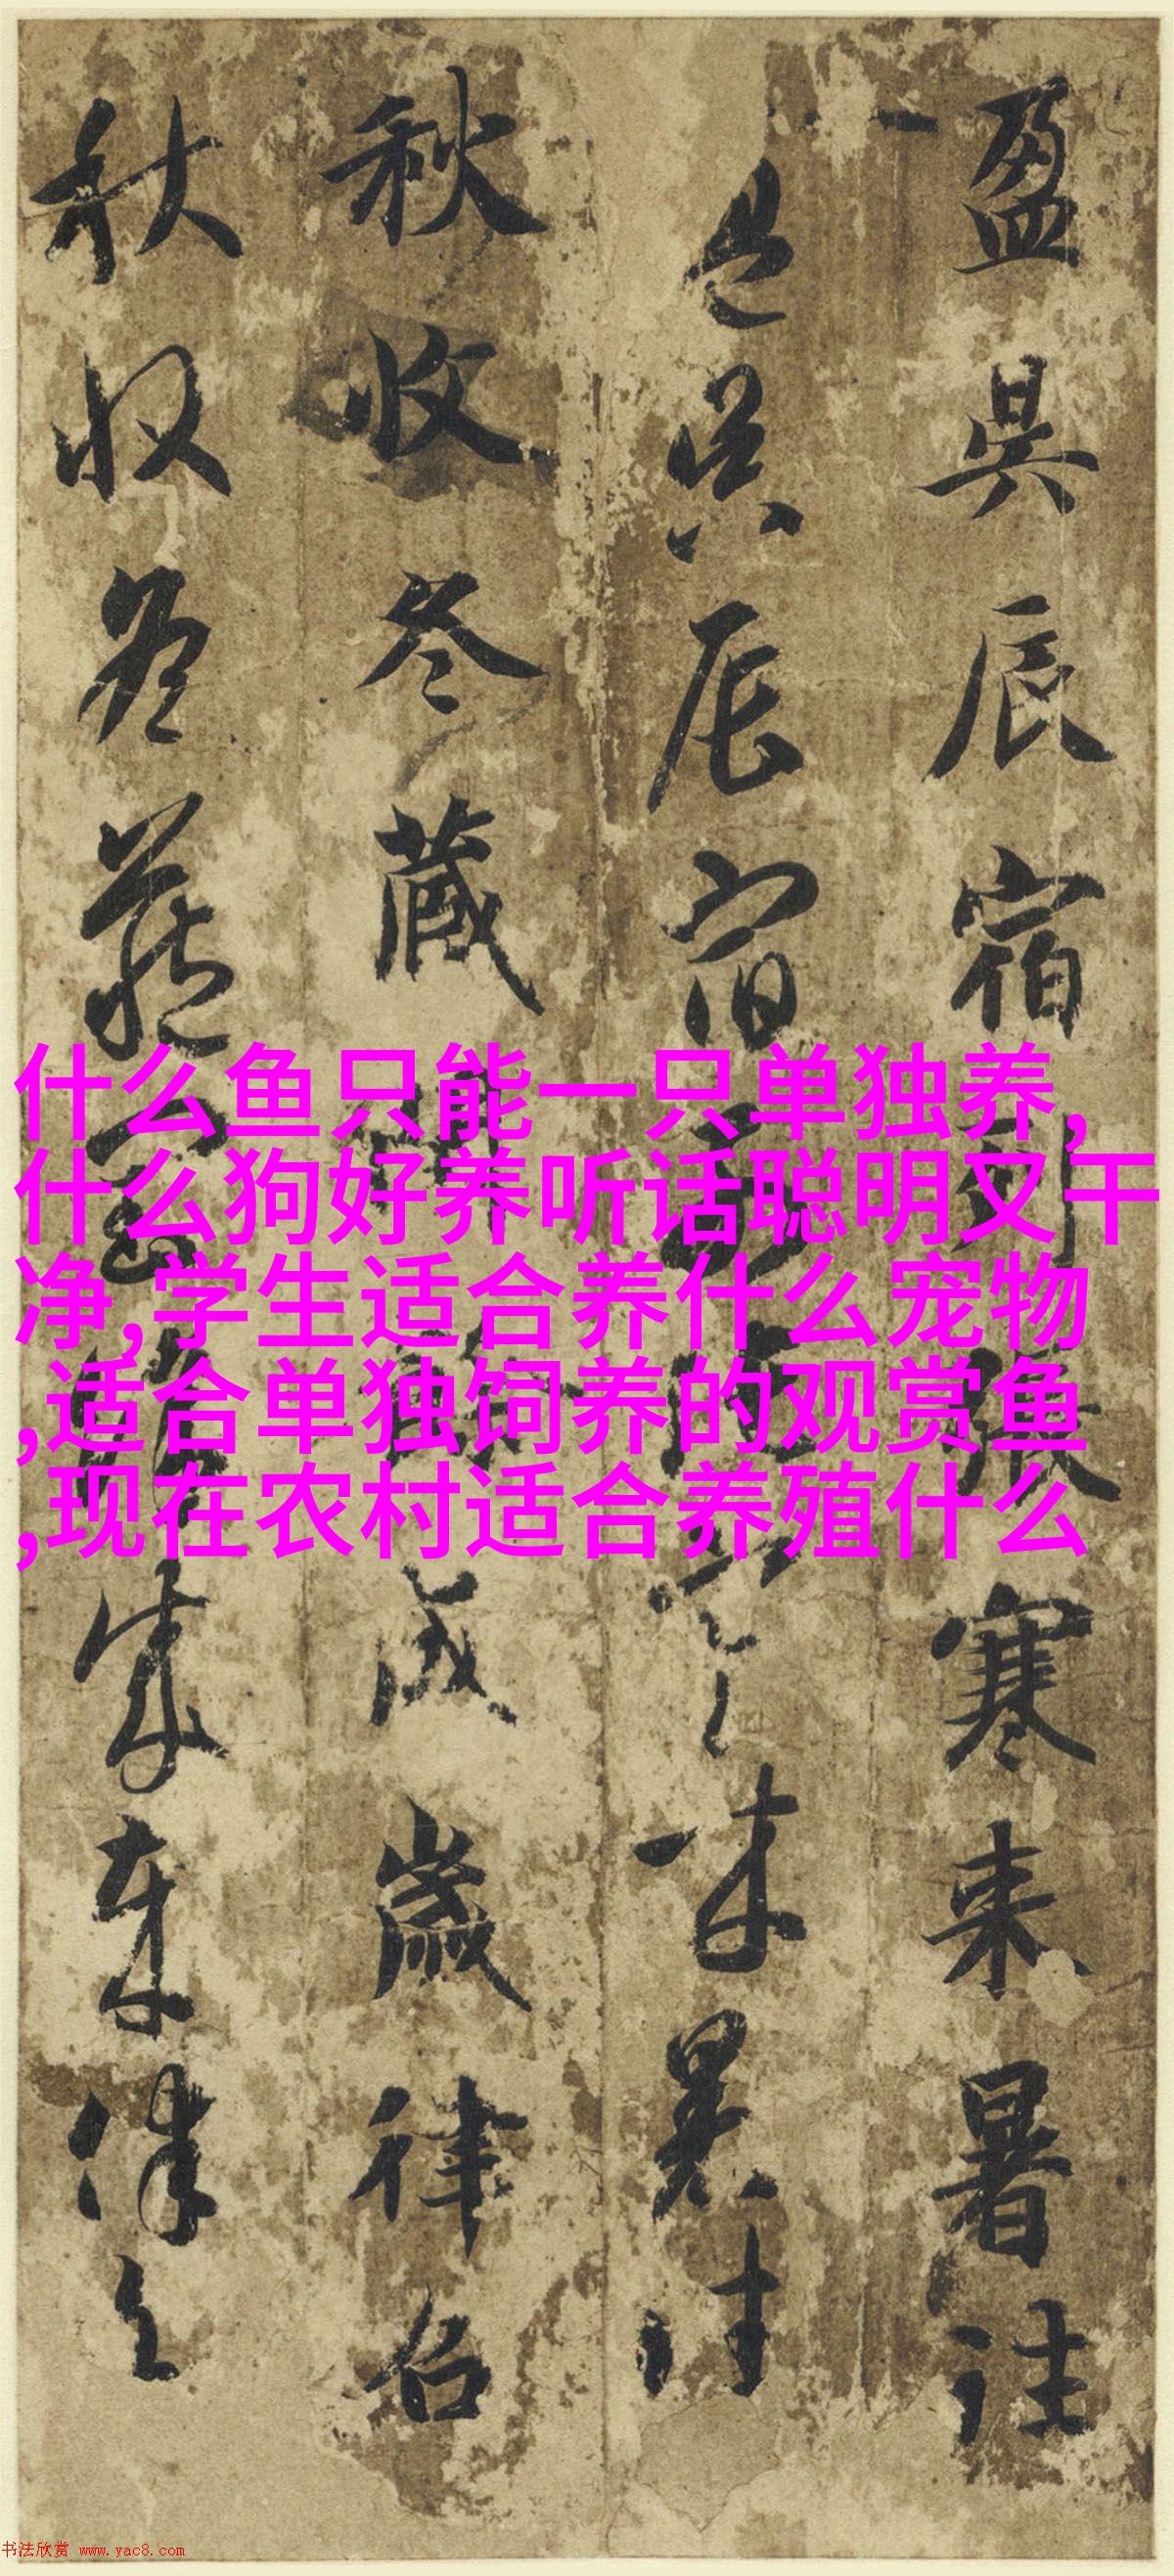 盈昃辰宿列張寒来暑往
盈昃辰宿列張寒来暑往
秋收冬藏閏餘成歲律吕
秋收冬藏閏餘成歲律吕
什么鱼只能一只单独养,
什么狗好养听话聪明又干
净,学生适合养什么宠物
,适合单独饲养的观赏鱼
,现在农村适合养殖什么
书法欣赏 www.yac8.com